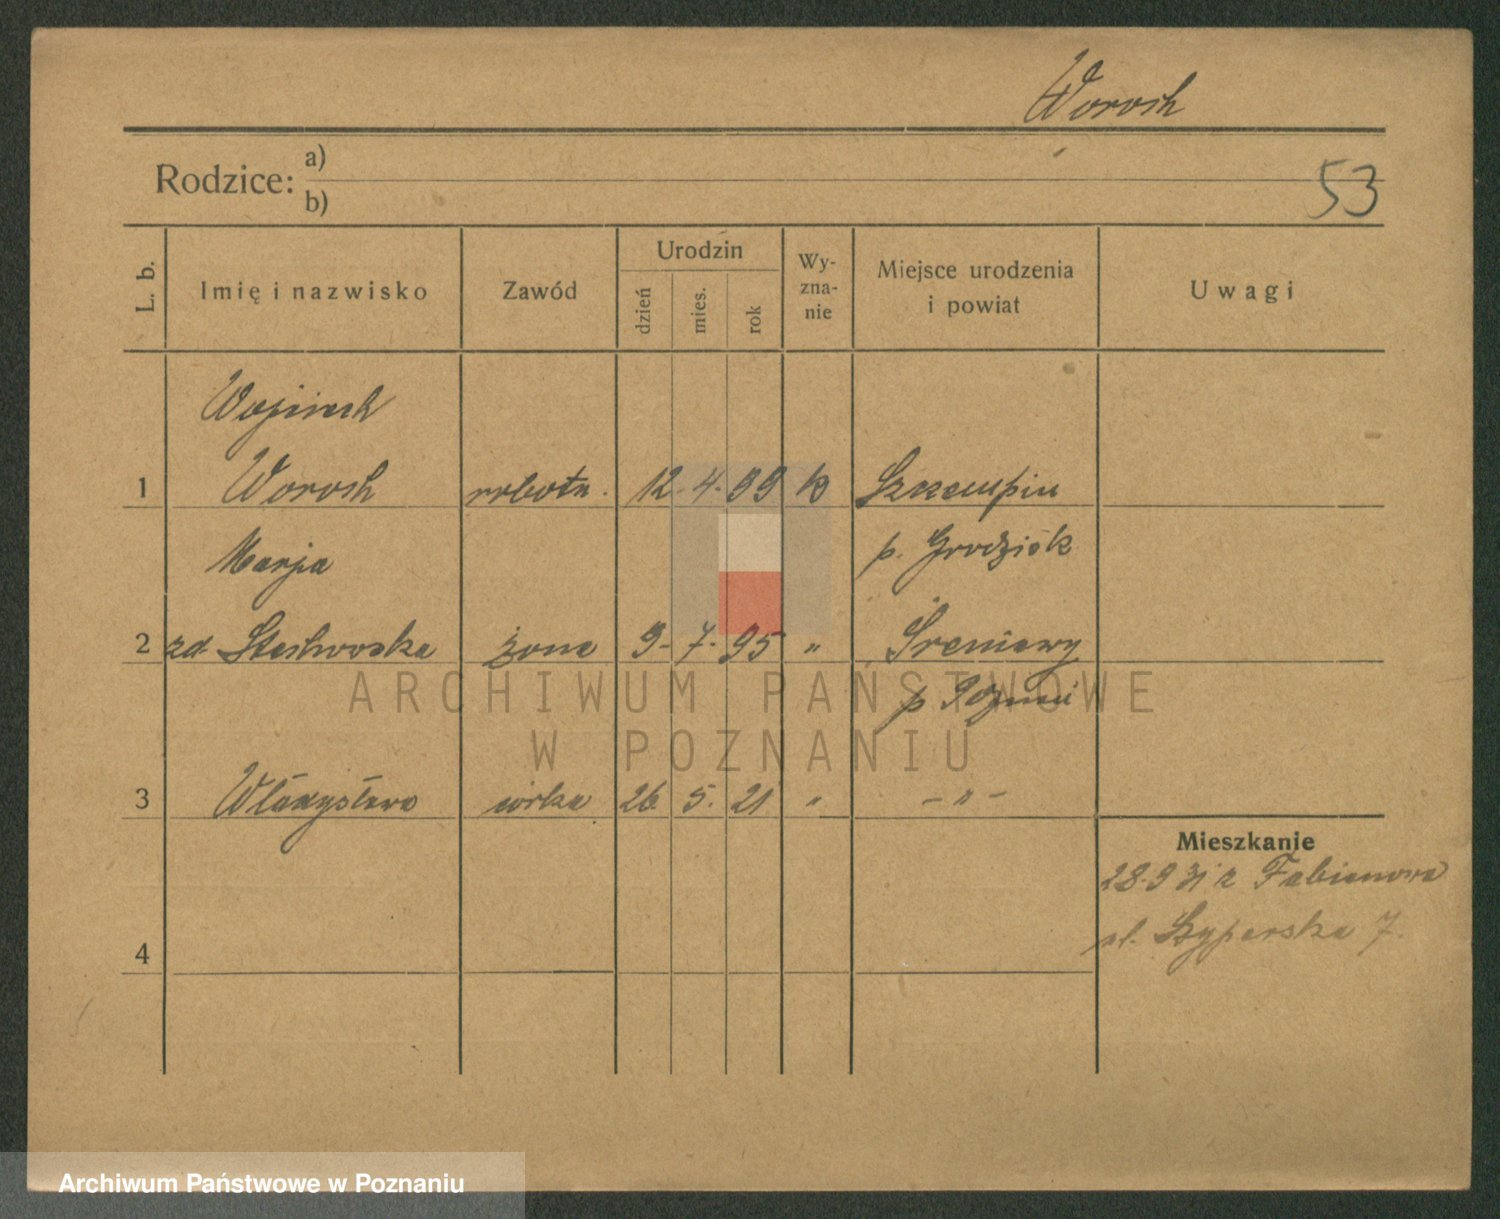 Worosh
Rodzice: a)
b)
53
L. b.
Imię i nazwisko
Zawód
Urodzin
dzień
mies.
rok
Wy-
zna-
nie
Miejsce urodzenia
i powiat
Uwagi
Wojciech
1 Worosh robotn. 12. 4. 99 k Szczempin
Marja p. Grodzisk
2 zd. żona 9. 7. 95 "
ARCHIWUM PAŃSTWOWE
W POZNANIU
3 Władysława córka 26. 5. 21 " - " -
Mieszkanie
28.9 31 z Fabianowa
4 ul. Szyperska 7.
Archiwum Państwowe w Poznaniu